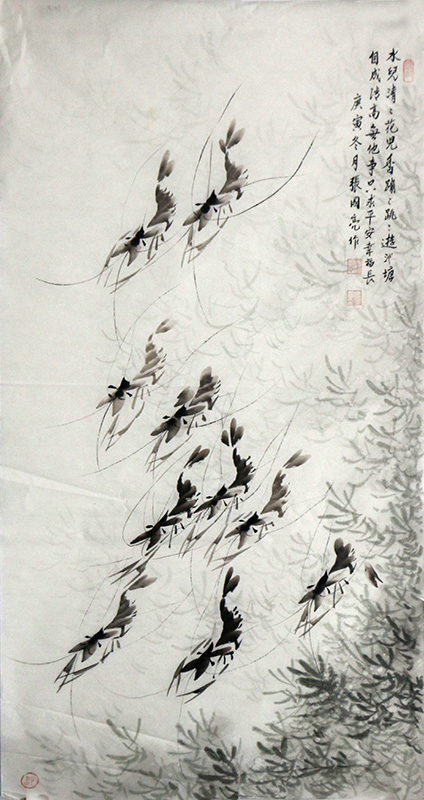 水兒清清花兒香蹦蹦跳跳遊池塘
自成清高無他事只求平安幸福長
庚寅冬月張國亮作